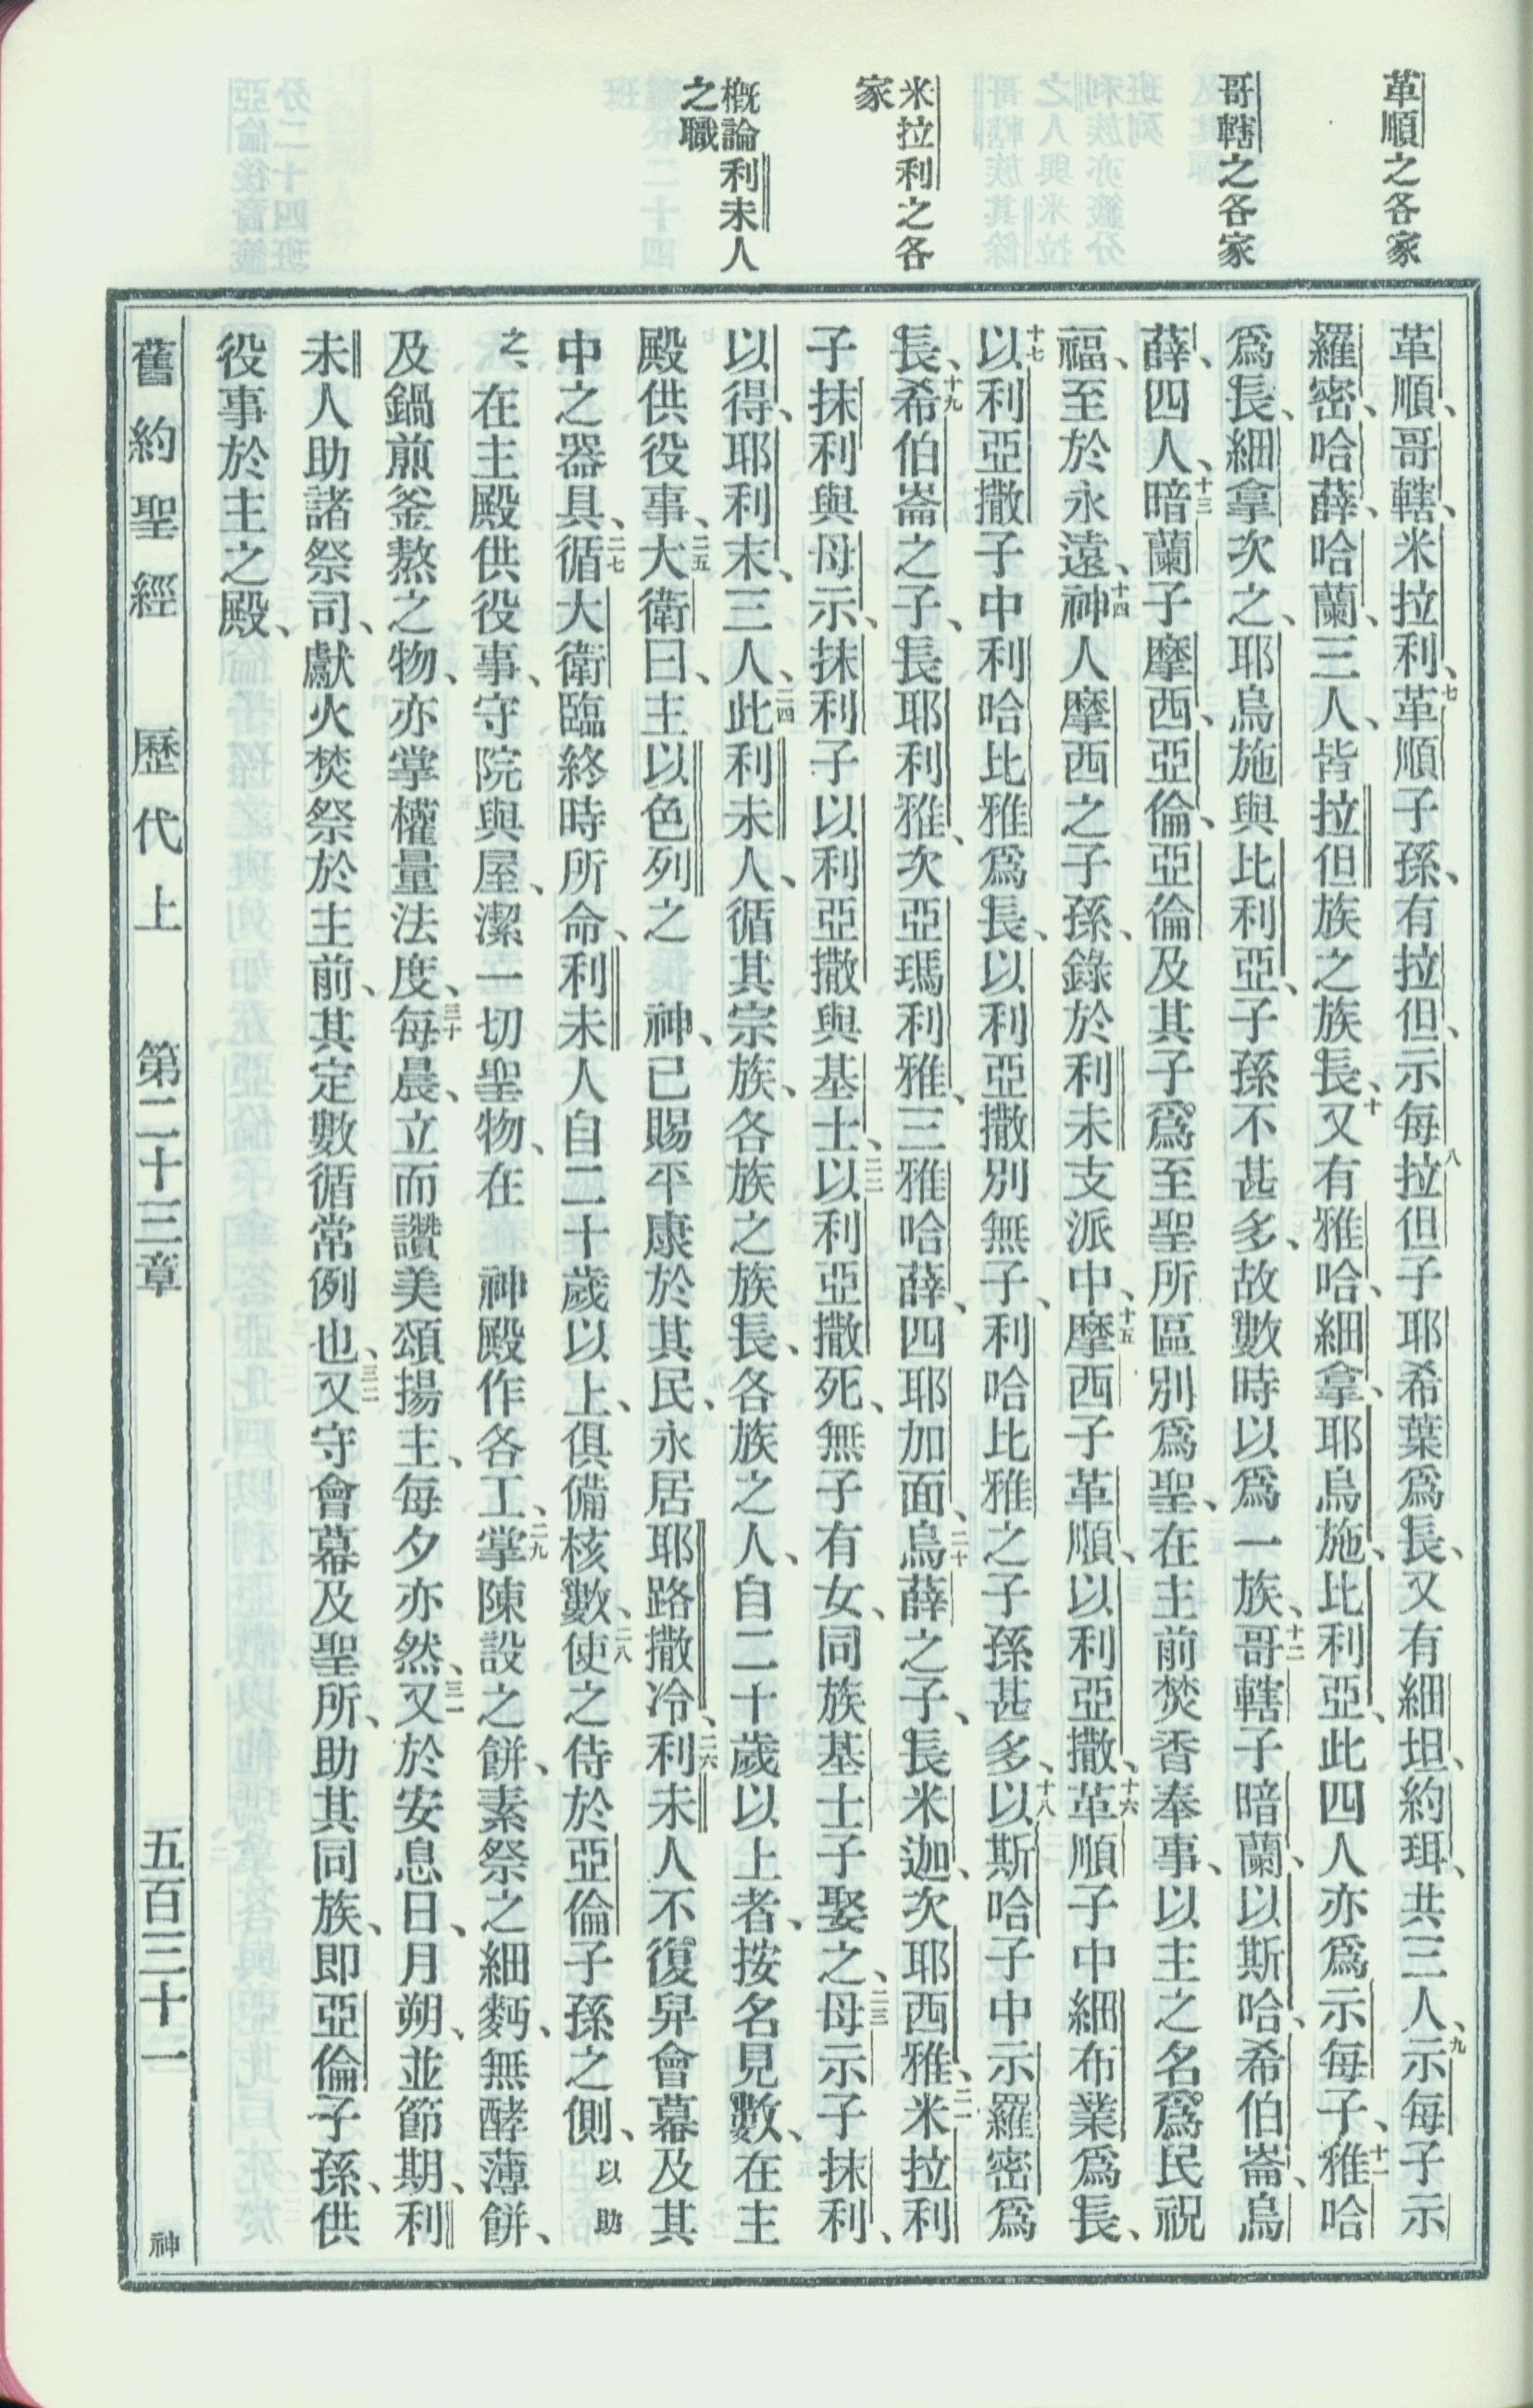 革順之各家
哥轄之各家
米拉利之各
家
概論利未人
之職
革順、哥轄、米拉利、七革順子孫、有拉但、示每、八拉但子耶希葉爲長、又有細坦、約珥、共三人、九示每子示
羅密、哈薛、哈蘭、三人、皆拉但族之族長、十又有雅哈、細拿、耶烏施、比利亞、此四人亦爲示每子、十一雅哈
爲長、細拿次之、耶烏施與比利亞、子孫不甚多、故數時以爲一族、十二哥轄子暗蘭、以斯哈、希伯崙、烏
薛、四人、十三暗蘭子摩西、亞倫、亞倫及其子爲至聖所區別爲聖、在主前焚香奉事、以主之名爲民祝
福、至於永遠、十四神人摩西之子孫、錄於利未支派中、十五摩西子革順、以利亞撒、十六革順子中細布業爲長、
十七以利亞撒子中利哈比雅爲長、以利亞撒別無子、利哈比雅之子孫甚多、十八以斯哈子中示羅密爲
長、十九希伯崙之子、長耶利雅、次亞瑪利雅、三雅哈薛、四耶加面、二十烏薛之子、長米迦、次耶西雅、二一米拉利
子抹利與母示、抹利子以利亞撒與基士、二二以利亞撒死、無子有女、同族基士子娶之、二三母示子抹利、
以得、耶利末、三人、二四此利未人、循其宗族、各族之族長、各族之人、自二十歲以上者、按名見數、在主
殿供役事、二五大衛曰、主以色列之 神、已賜平康於其民、永居耶路撒冷、二六利未人不復舁會幕及其
中之器具、二七循大衛臨終時所命、利未人自二十歲以上、俱備核數、二八使之侍於亞倫子孫之側、以助
之、在主殿供役事、守院與屋、潔一切聖物、在 神殿作各工、二九掌陳設之餅、素祭之細麪、無酵薄餅、
及鍋煎釜熬之物、亦掌權量法度、三十每晨、立而讚美頌揚主、每夕亦然、三一又於安息日、月朔、並節期、利
未人助諸祭司、獻火焚祭於主前、其定數循常例也、三二又守會幕及聖所、助其同族、即亞倫子孫、供
役事於主之殿、
舊約聖經 歷代上 第二十三章 五百三十一 神